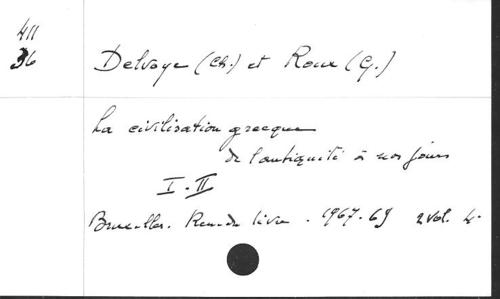 411
36
Delvoye (Ch.) et Roux (G.)
La civilisation grecque
de l'antiquité à nos jours
I-II
Bruxelles. Ren. du livre. 1967-69 2 vol. 4.